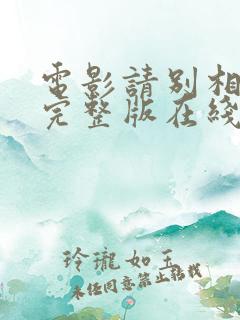 電影請別相
完整版在綫
玲瓏如玉
未经同意禁止转载